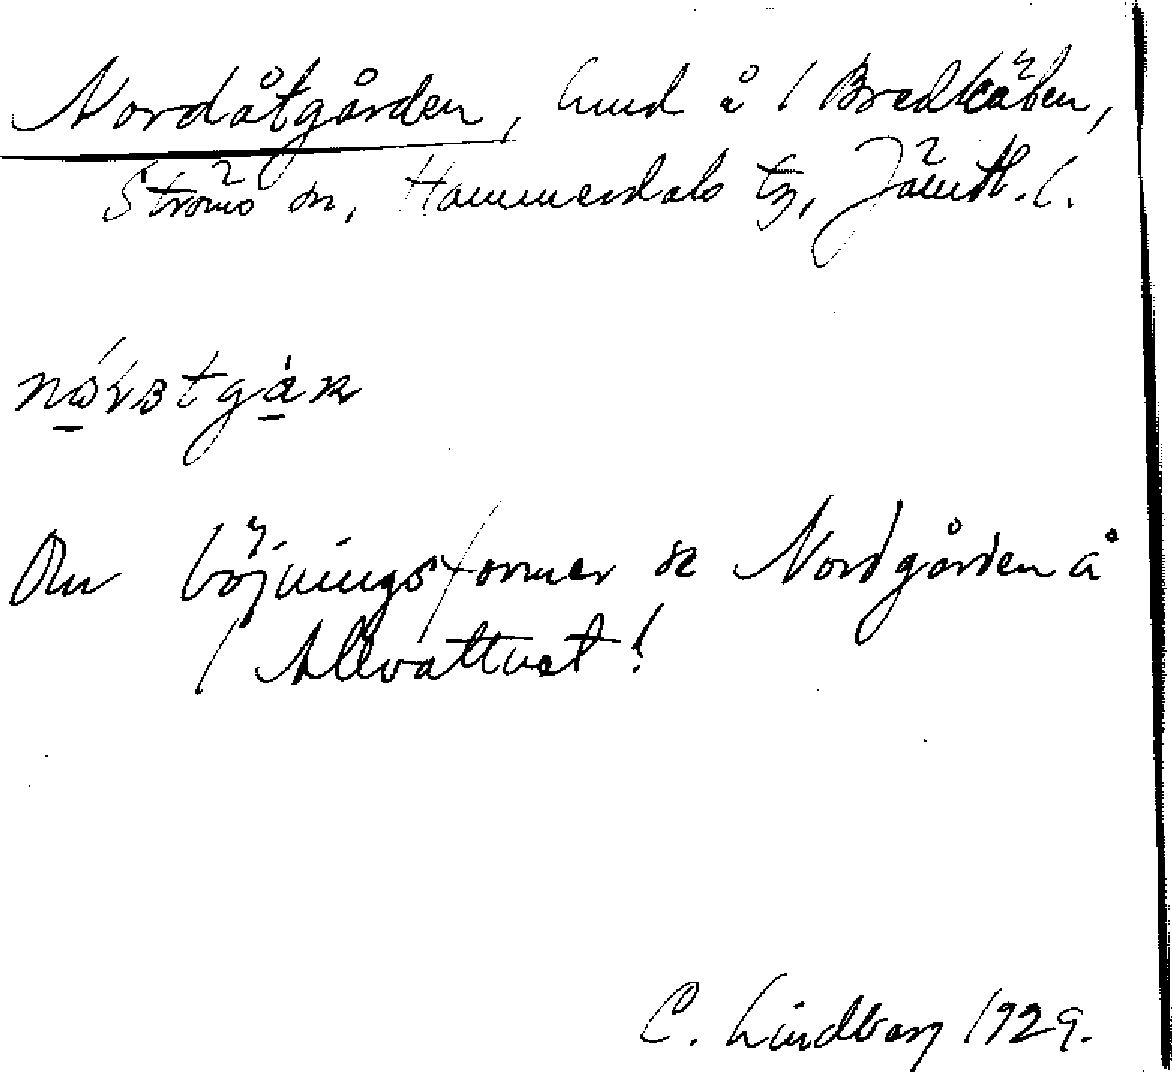 Nordåtgården, hmd å / Bredkälen,
Ströms sn, Hammerdals tg, Jämtl. l.
Om böjningsformer se Nordgården å
/ Allvattnet!
C. Lindberg 1929.